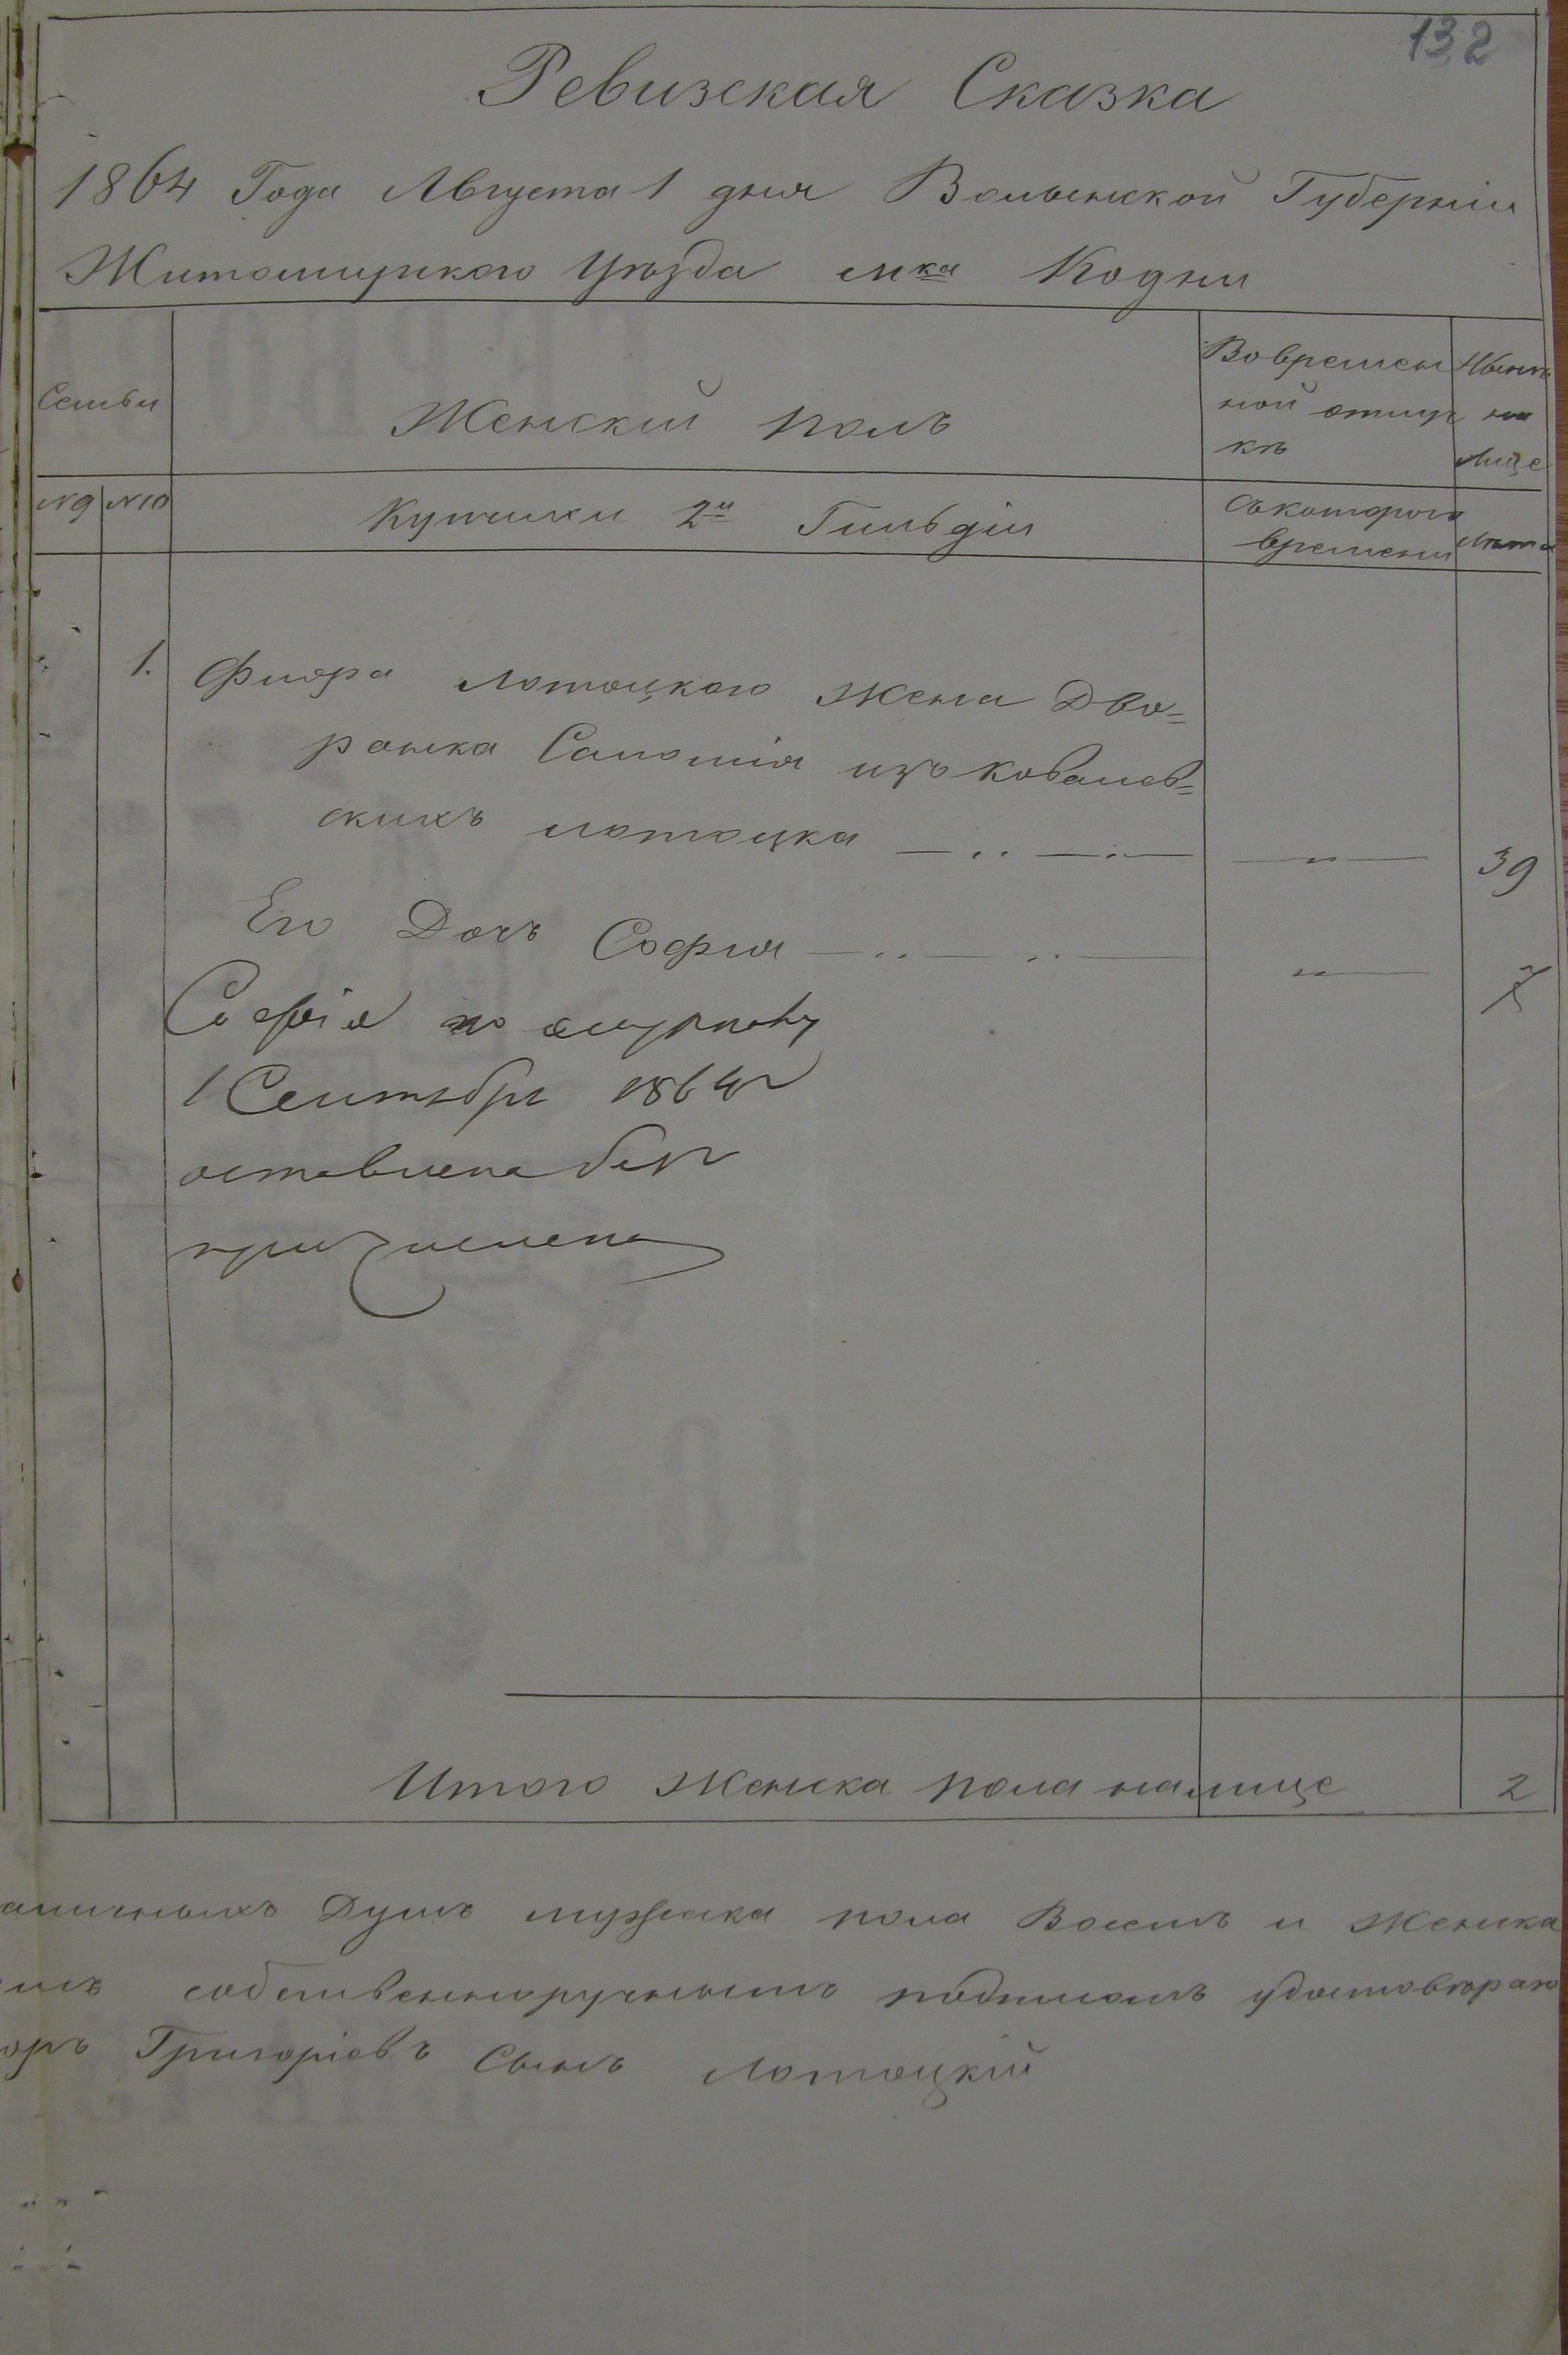 132
Ревизская Сказка
1864 Года Августа 1 дня Волынской Губерніи
Житомирскаго Уѣзда м-ка Кодни
Семьи
Женскій полъ
Вовремен
ной отлуч
кѣ
Нынѣ
на
лице
№9 №10
Купчихи 2й Гильдіи
Скотораго
времени
Лѣта
1. Флора Лотоцкого Жена Дво=
рянка Саломія изъ Ковалев=
скихъ Лотоцка
" 39
Его Дочь Софія
" 7
Софія по
1 Сентября 1864
оставлена безъ
причисленія
Итого Женска пола налице 2
аличныхъ Душъ мужеска пола Восемъ и Женска
имъ собственноручнымъ подписомъ удостовѣраю
оръ Григоріевъ Сынъ Лотоцкій